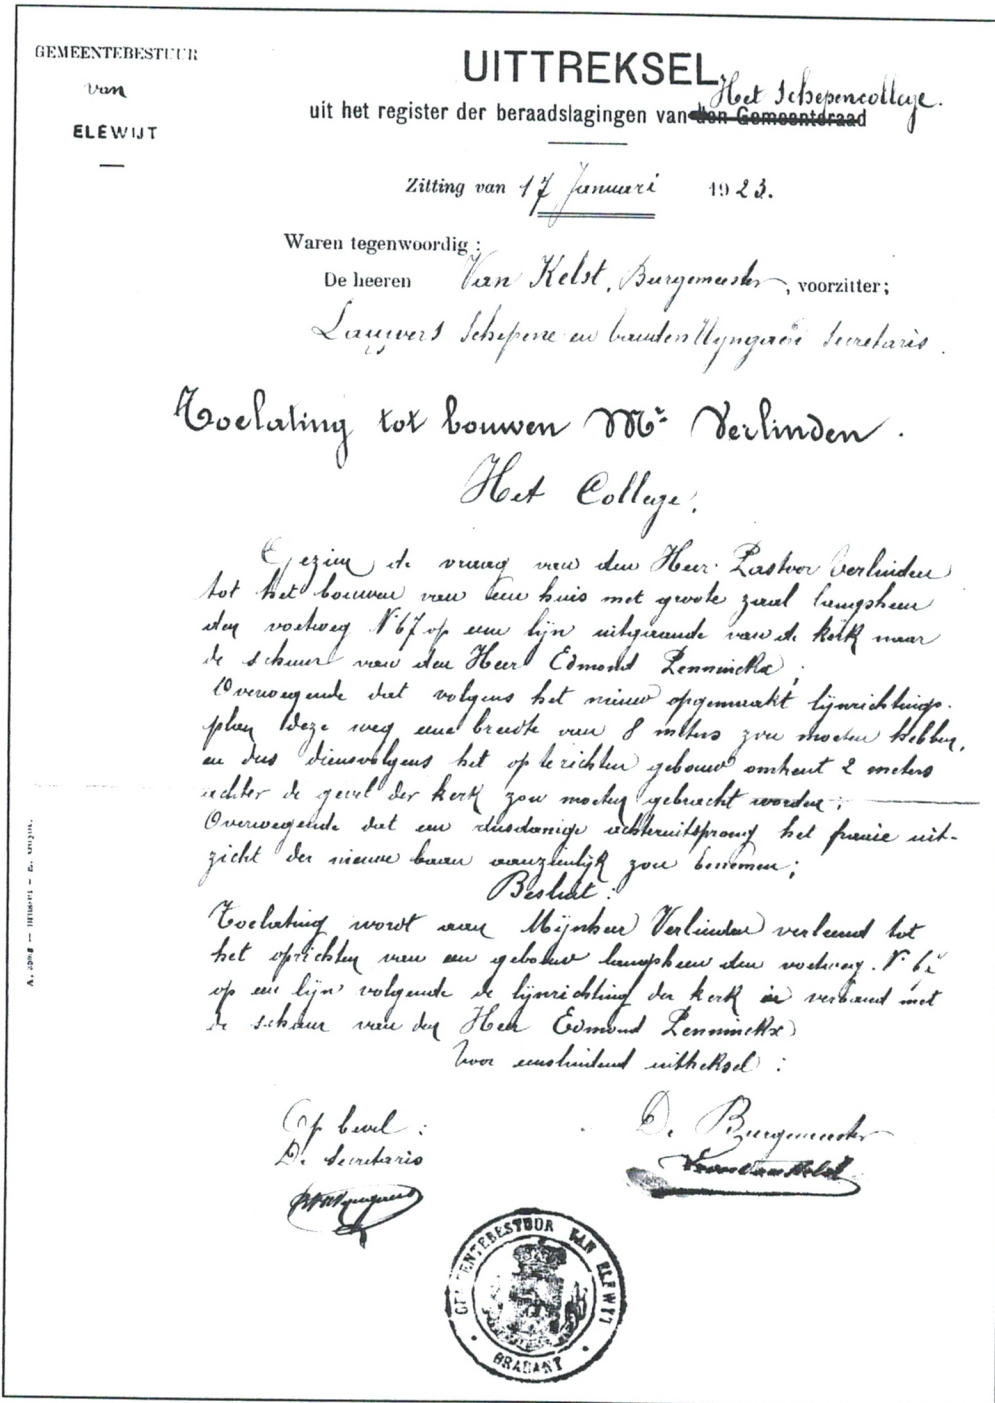 GEMEENTEBESTUUR
van
ELEWIJT
UITTREKSEL
Het Schepencollege.
uit het register der beraadslagingen van den Gemeenteraad
Zitting van 17 Januari 1923.
Waren tegenwoordig :
De heeren Van Kelst, Burgemeester, voorzitter;
Lauwers Schepene en Secretaris.
Toelating tot bouwen Mr Verlinden.
Het College,
Gezien de vraag van den Heer Pastoor Verlinden
tot het bouwen van een huis met groote zaal langsheen
den voetweg N 67 op een lijn uitgaande van de kerk naar
de schuur van den Heer Edmond Penninckx;
Overwegende dat volgens het nieuw opgemaakt lijnrichtings-
plan deze weg eene breedte van 8 meters zou moeten hebben,
en dus dienvolgens het op te richten gebouw omtrent 2 meters
achter de gevel der kerk zou moeten gebracht worden;
Overwegende dat een dusdanige achteruitsprong het fraaie uit-
zicht der nieuwe baan aanzienlijk zou benemen;
Besluit:
Toelating wordt aan Mijnheer Verlinden verleend tot
het oprichten van een gebouw langsheen den voetweg N 67
op een lijn volgende de lijnrichting der kerk in verband met
de schuur van den Heer Edmond Penninckx
Voor eensluidend uittreksel :
Op bevel :
De Secretaris
De Burgemeester
GEMEENTEBESTUUR VAN ELEWYT
BRABANT